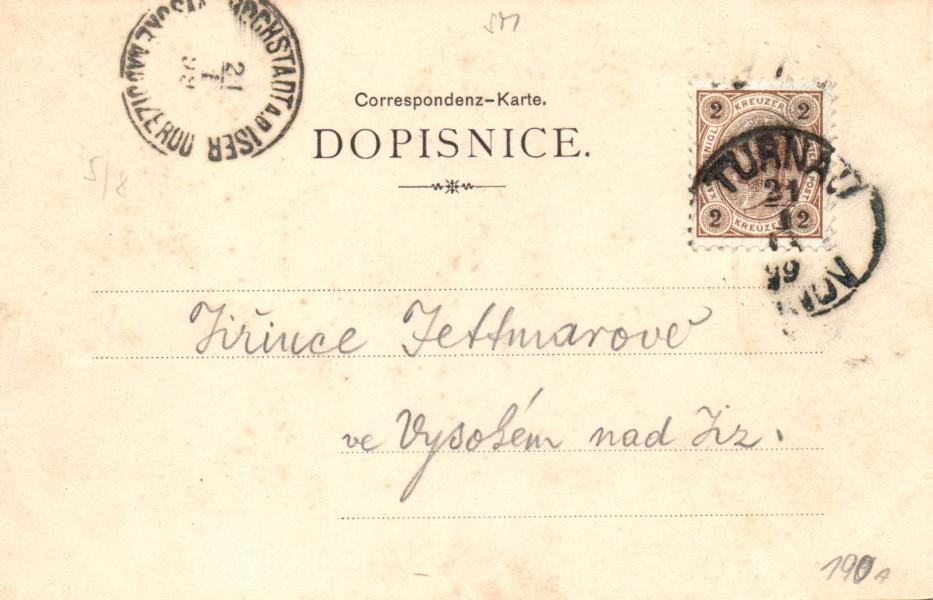 HOCHSTADT A.D. ISER
21
1
Correspondenz-Karte.
DOPISNICE.
2 KREUZER 2
2 KREUZER 2
TURNAU
21
1
99
5/8
Jiřince Jettmarové
ve Vysokém nad Jiz.
190